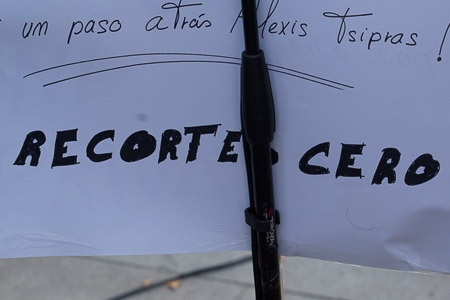 un paso atrás Alexis Tsipras!
RECORTE CERO